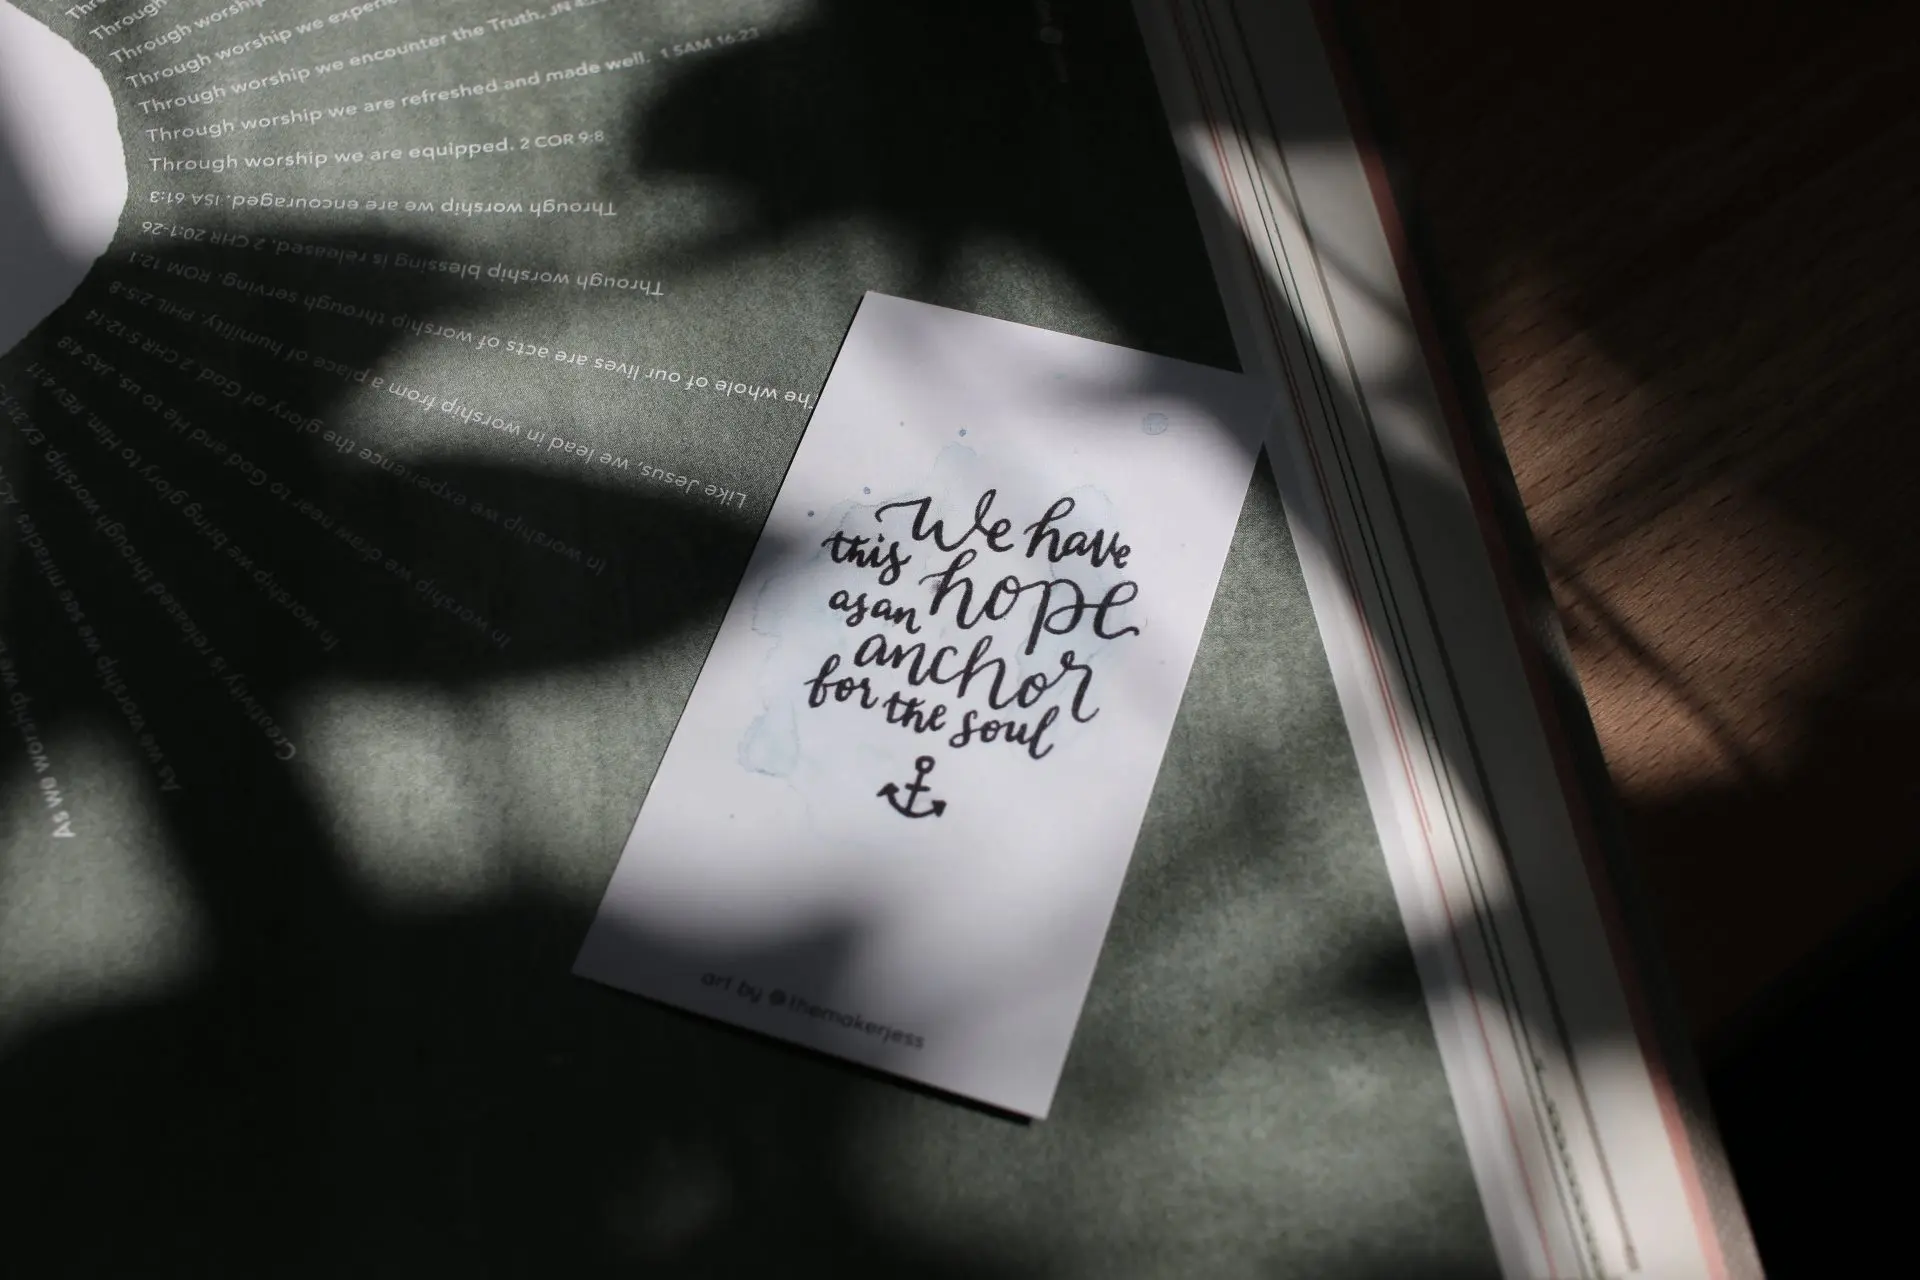 Through
Through worship
Through worship we experie
Through worship we encounter the Truth. JN
Through worship we are refreshed and made well. 1 SAM 16:23
Through worship we are equipped. 2 COR 9:8
Through worship we are encouraged. ISA 61:3
Through worship blessing is released. 2 CHR 20:1-26
The whole of our lives are acts of worship through serving. ROM 12:1
Like Jesus, we lead in worship from a place of humility. PHIL 2:5-8
In worship we experience the glory of God. 2 CHR 5:12-14
In worship we draw near to God and He to us. JAS 4:8
In worship we bring glory to Him. REV 4:11
Creativity is released through worship. EX
As we worship we see miracles.
As we worship we
We have
this hope
as an
anchor
for the soul
art by @themakerjess